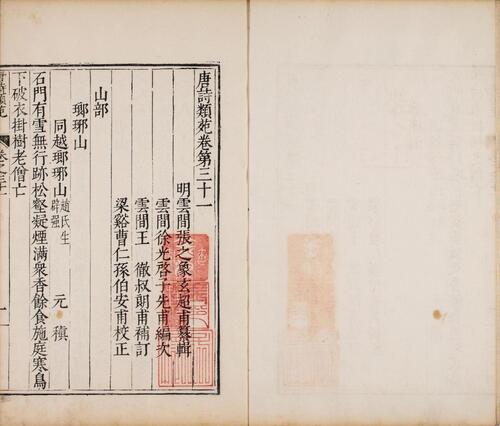 唐詩類苑卷第三十一
明雲間張之象玄超甫纂輯
雲間徐光啓子先甫編次
雲間王　徹叔朗甫補訂
梁谿曹仁孫伯安甫校正
山部
瑯琊山
同越瑯琊山 趙氏生辟强　元稹
石門有雪無行跡松壑凝煙滿衆香餘食施庭寒鳥
下破衣掛樹老僧亡